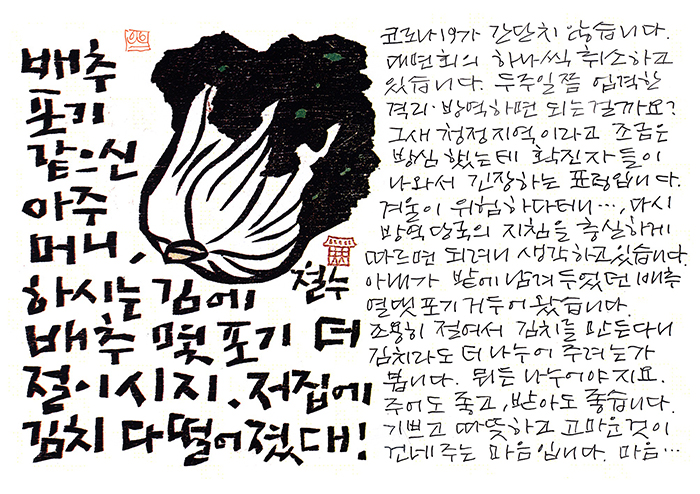 배추
포기
같으신
아주
머니,
하시는 김에
배추 몇 포기 더
절이시지. 저집에
김치 다 떨어졌대!
철수
코로나19가 간단치 않습니다.
대면회의 하나씩 취소하고
있습니다. 두주일쯤 엄격한
격리·방역하면 되는걸까요?
그새 청정지역이라고 조금은
방심했는데 확진자들이
나와서 긴장하는 표정입니다.
겨울이 위험하다더니…, 다시
방역당국의 지침을 충실하게
따르면 되려니 생각하고있습니다.
아내가 밭에 남겨두었던 배추
열댓포기 거두어 왔습니다.
조용히 절여서 김치를 만든다니
김치라도 더 나누어 주려는가
봅니다. 뭐든 나누어야지요.
주어도 좋고, 받아도 좋습니다.
기쁘고 따뜻하고 고마운것이
건네주는 마음입니다. 마음…